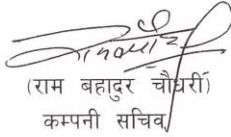 (राम बहादुर चौधरी)
कम्पनी सचिव